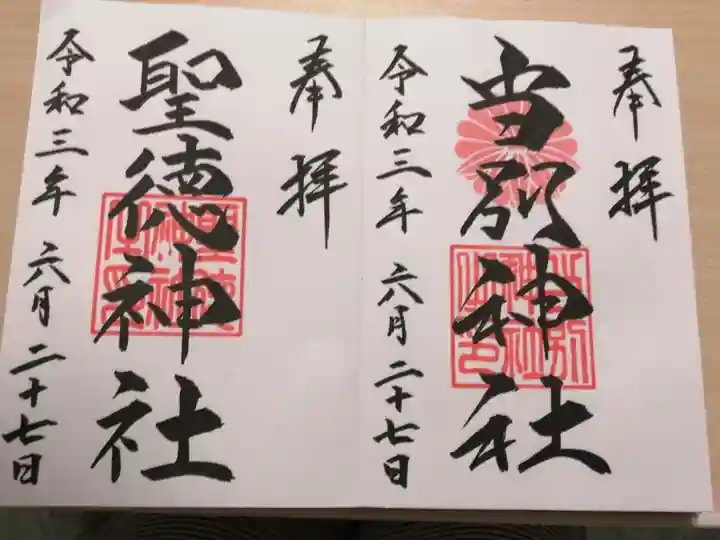 奉拝
当別神社
令和三年 六月二十七日
奉拝
聖徳神社
令和三年 六月二十七日